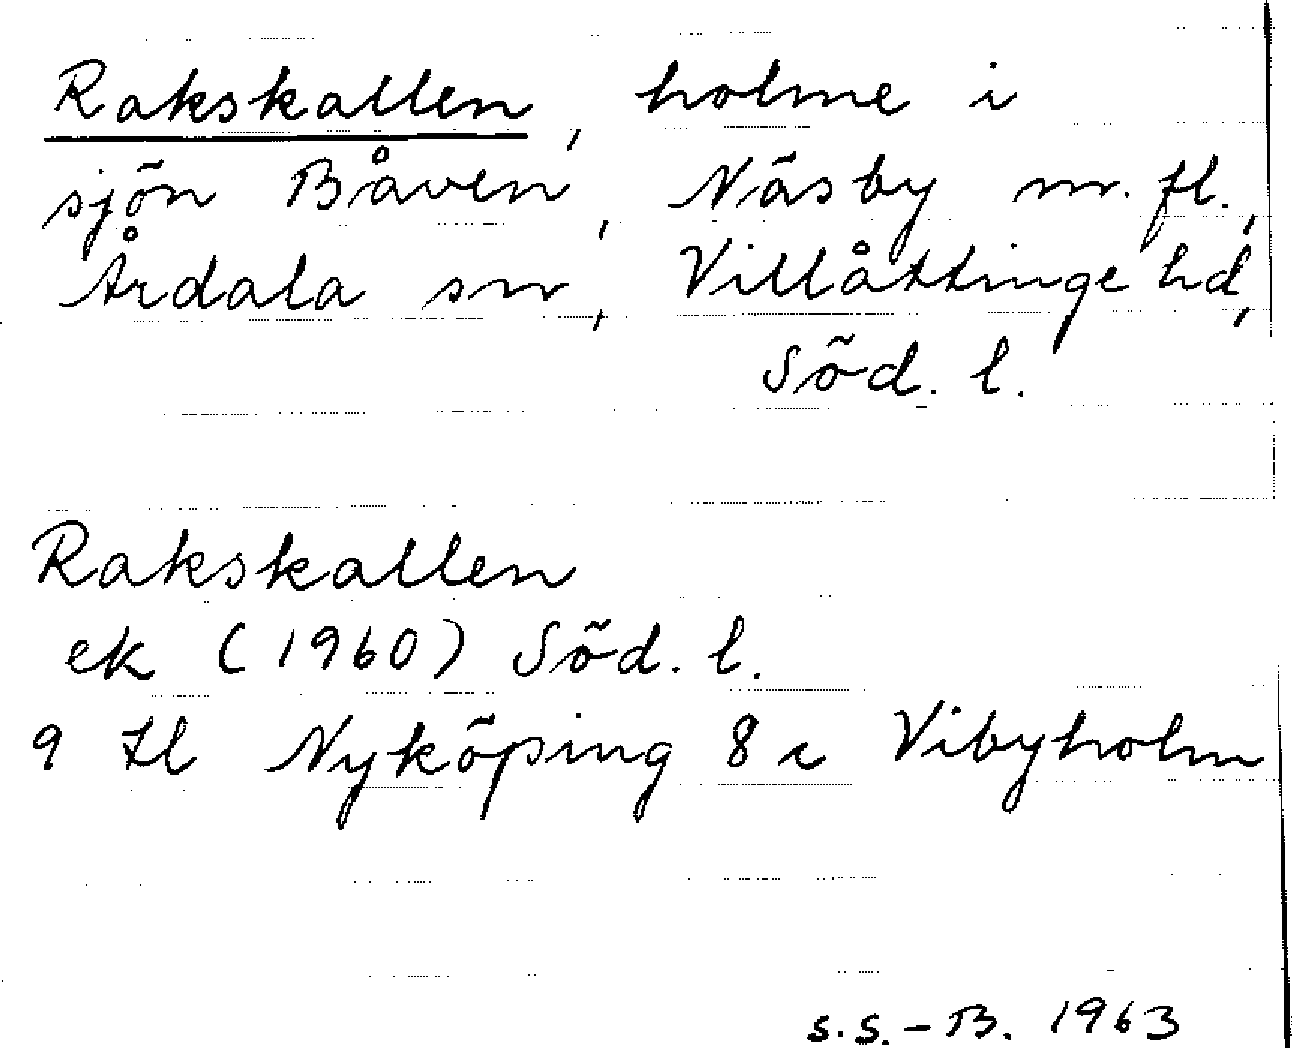 Rakskallen, holme i
sjön Båven, Näsby m. fl.,
Årdala sn, Villåttinge hd,
Söd. l.
Rakskallen
ek (1960) Söd. l.
9 H Nyköping 8 c Vibyholm
s.s.-B. 1963